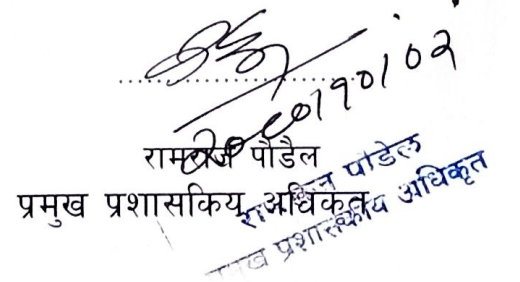 २०८०।१०।०२
रामब्रिज पौडेल
प्रमुख प्रशासकिय अधिकृत
पौडेल
प्रशासकीय अधिकृत